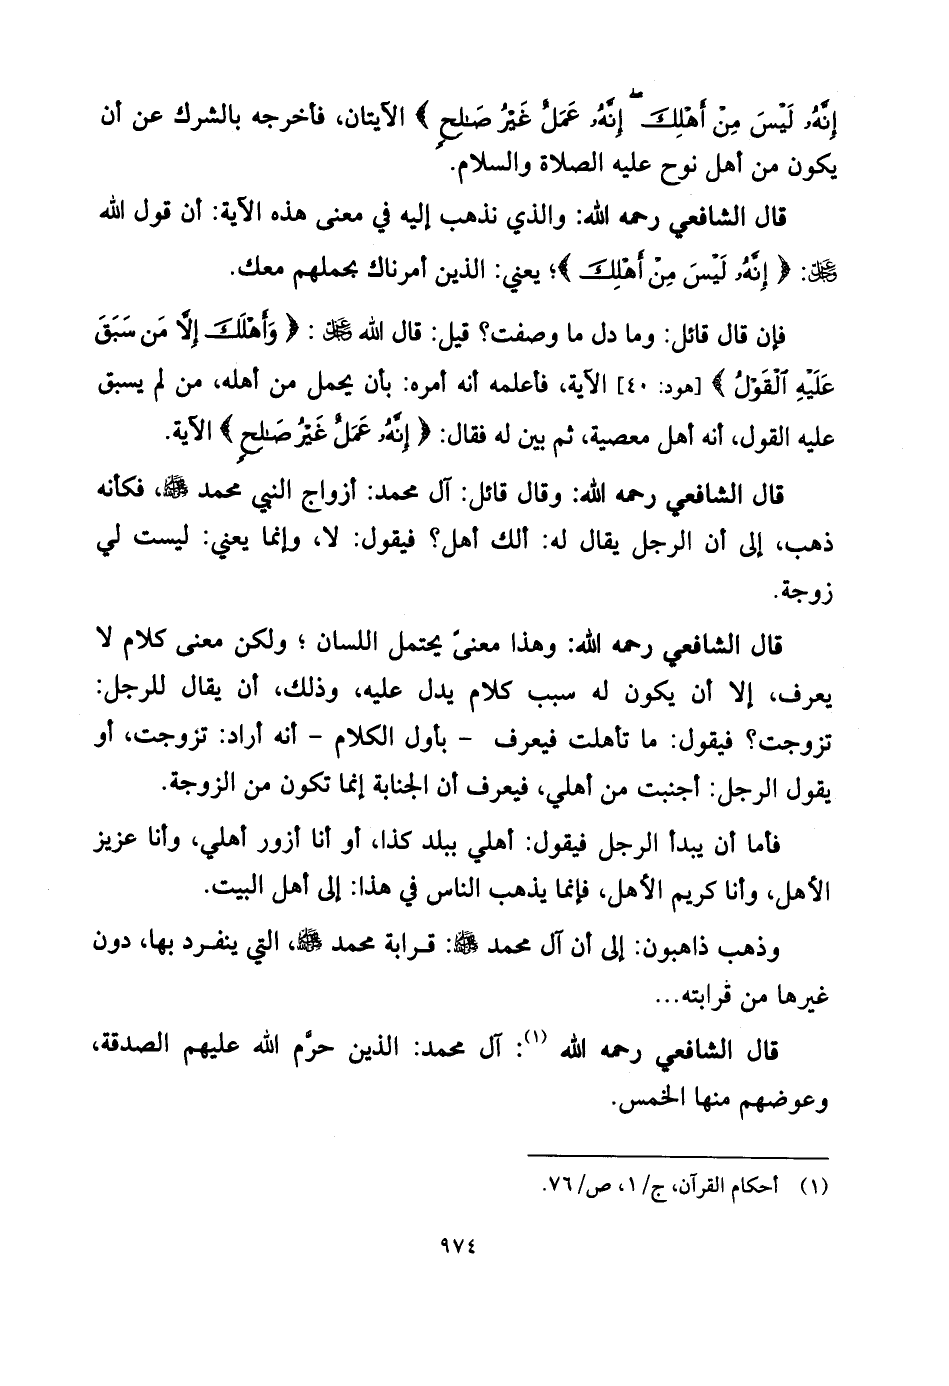 إِنَّهُۥ لَيْسَ مِنْ أَهْلِكَ ۖ إِنَّهُۥ عَمَلٌ غَيْرُ صَـٰلِحٍ ﴾ الآيتان، فأخرجه بالشرك عن أن
يكون من أهل نوح عليه الصلاة والسلام.
قال الشافعي رحمه الله: والذي نذهب إليه في معنى هذه الآية: أن قول الله
ﷻ: ﴿ إِنَّهُۥ لَيْسَ مِنْ أَهْلِكَ ﴾؛ يعني: الذين أمرناك بحملهم معك.
فإن قال قائل: وما دل ما وصفت؟ قيل: قال الله ﷻ : ﴿ وَأَهْلَكَ إِلَّا مَن سَبَقَ
عَلَيْهِ ٱلْقَوْلُ ﴾ [هود: ٤٠] الآية، فأعلمه أنه أمره: بأن يحمل من أهله، من لم يسبق
عليه القول، أنه أهل معصية، ثم بين له فقال: ﴿ إِنَّهُۥ عَمَلٌ غَيْرُ صَـٰلِحٍ ﴾ الآية.
قال الشافعي رحمه الله: وقال قائل: آل محمد: أزواج النبي محمد ﷺ، فكأنه
ذهب، إلى أن الرجل يقال له: ألك أهل؟ فيقول: لا، وإنما يعني: ليست لي
زوجة.
قال الشافعي رحمه الله: وهذا معنىً يحتمل اللسان ؛ ولكن معنى كلام لا
يعرف، إلا أن يكون له سبب كلام يدل عليه، وذلك، أن يقال للرجل:
تزوجت؟ فيقول: ما تأهلت فيعرف - بأول الكلام - أنه أراد: تزوجت، أو
يقول الرجل: أجنبت من أهلي، فيعرف أن الجنابة إنما تكون من الزوجة.
فأما أن يبدأ الرجل فيقول: أهلي ببلد كذا، أو أنا أزور أهلي، وأنا عزيز
الأهل، وأنا كريم الأهل، فإنما يذهب الناس في هذا: إلى أهل البيت.
وذهب ذاهبون: إلى أن آل محمد ﷺ: قرابة محمد ﷺ، التي ينفرد بها، دون
غيرها من قرابته...
قال الشافعي رحمه الله (١): آل محمد: الذين حرَّم الله عليهم الصدقة،
وعوضهم منها الخمس.
(١) أحكام القرآن، ج/ ١، ص/ ٧٦.
٩٧٤